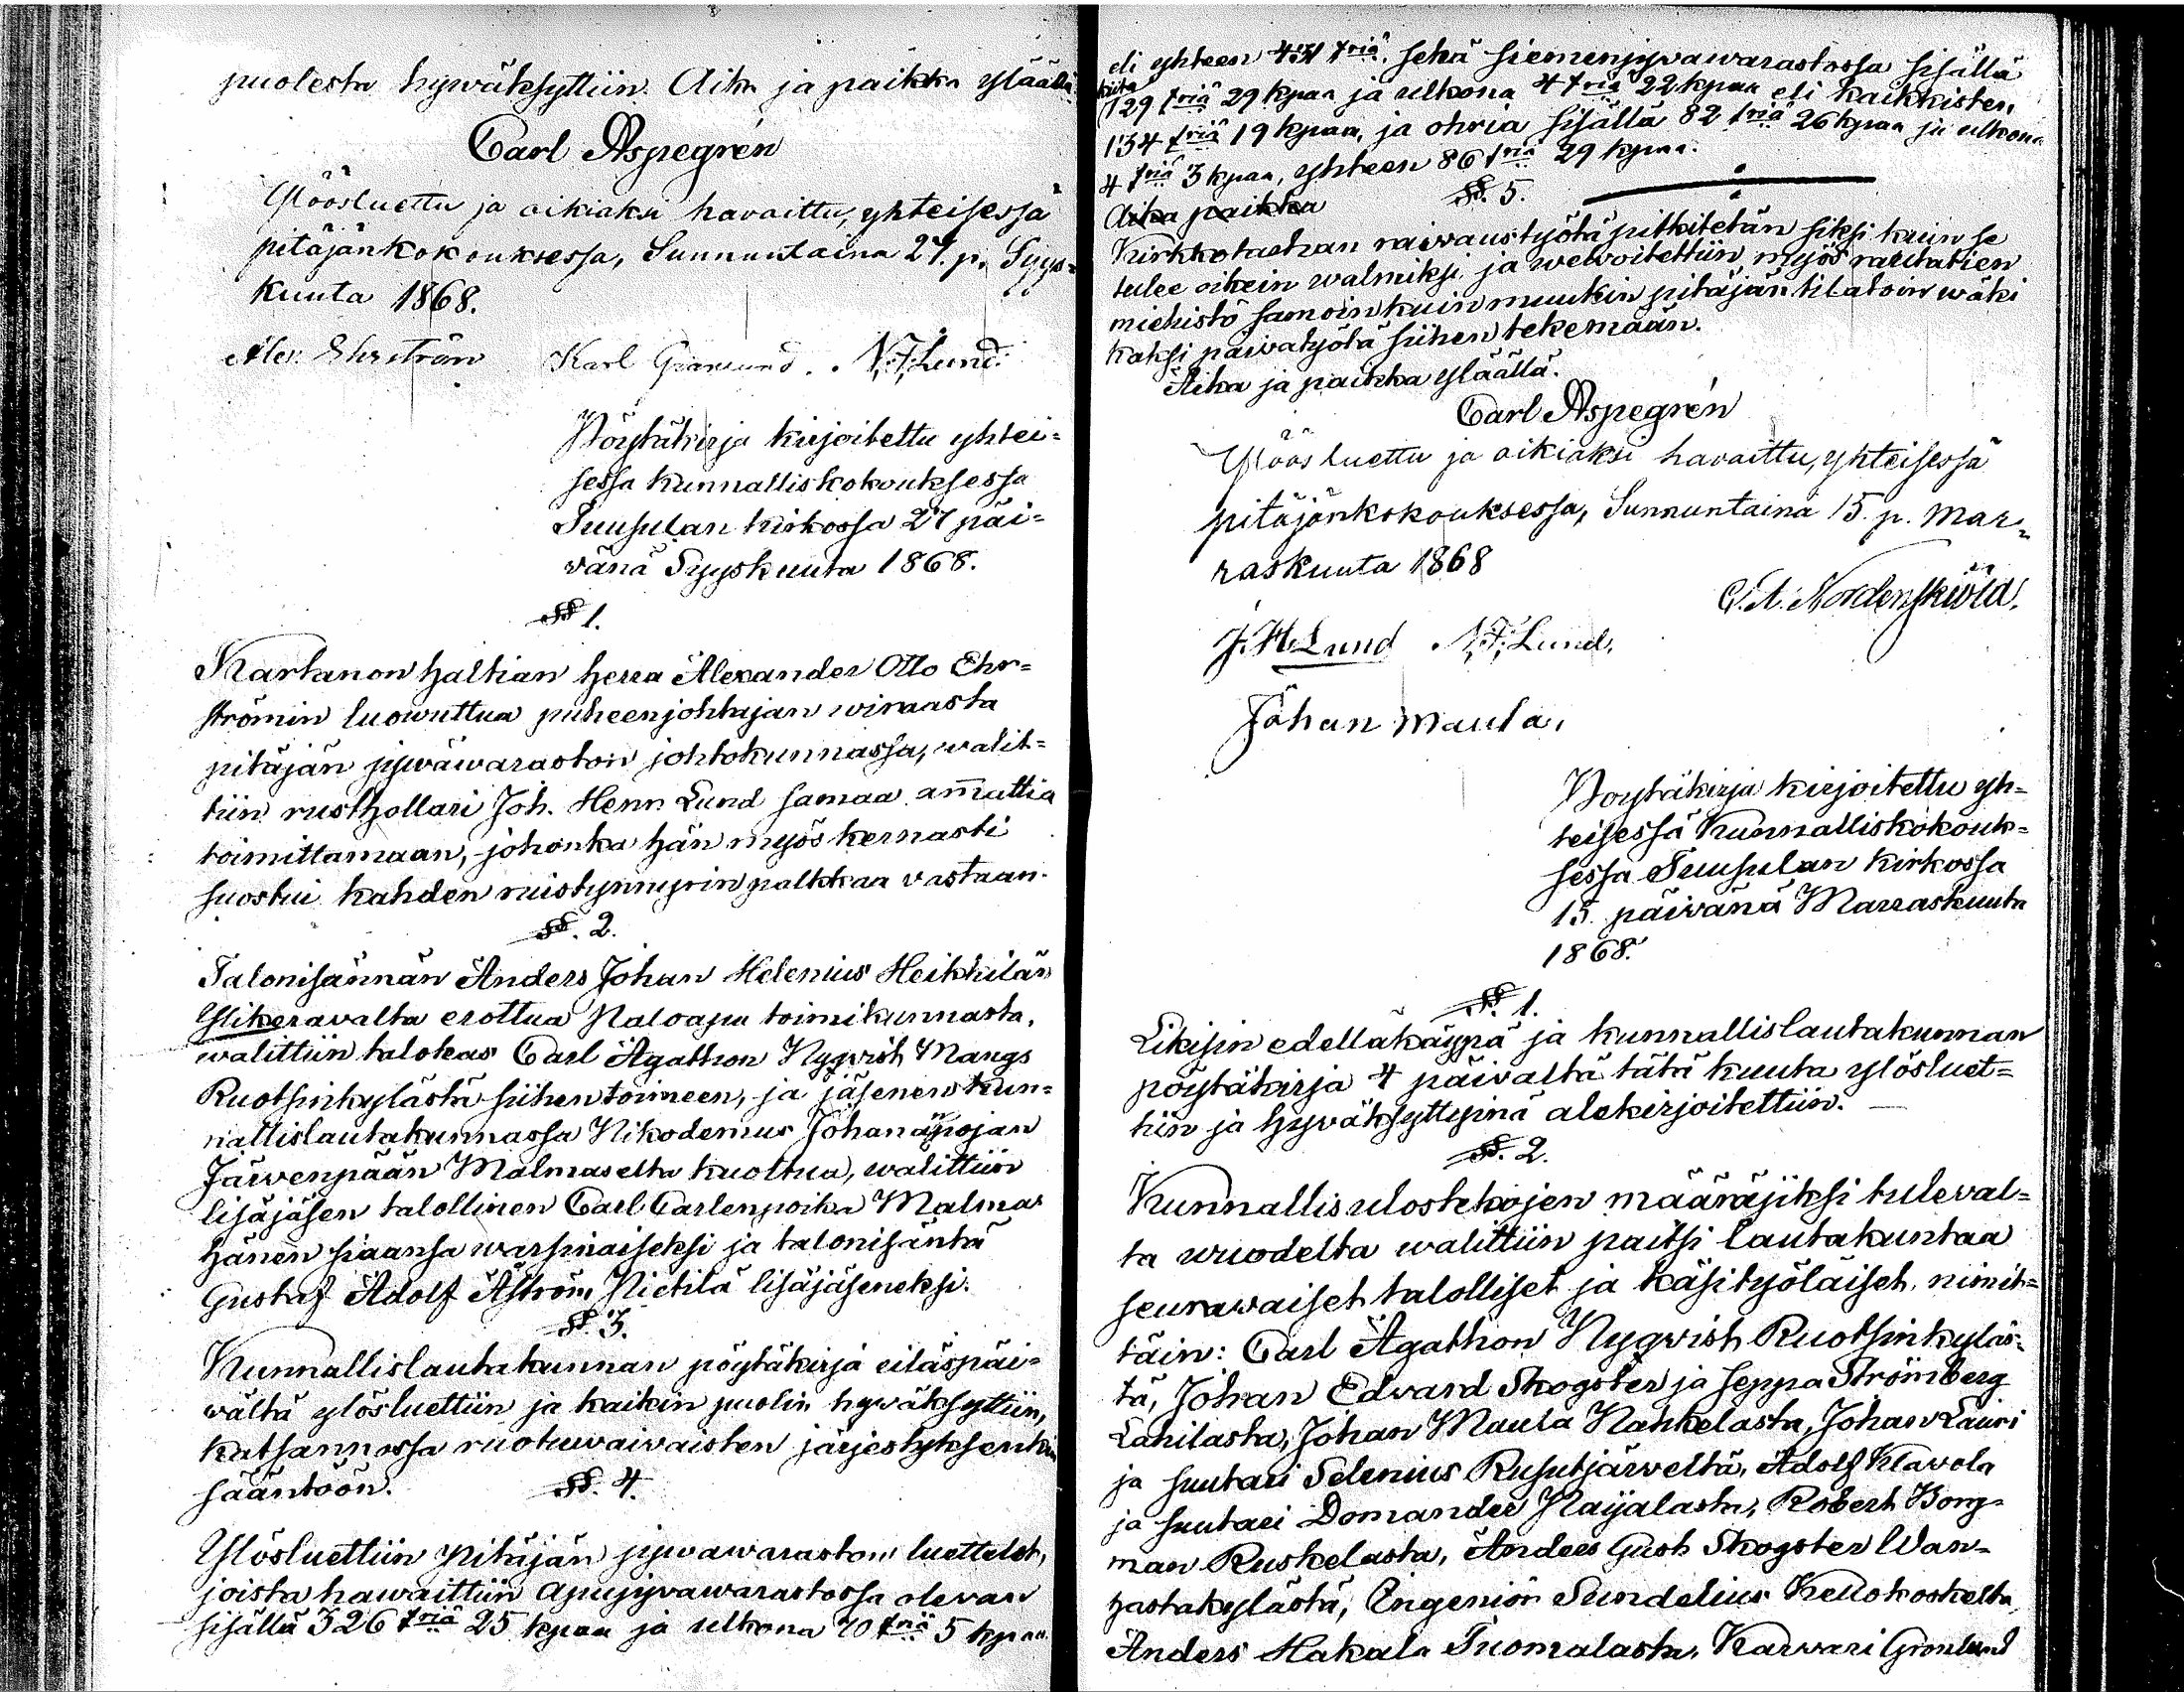 puolesta hywäksyttiin. Aika ja paikka yläällä
Carl Aspegrén
Ylösluettu ja oikiaksi havaittu, yhteisessä
pitäjänkokouksessa, Sunnuntaina 27. p. Syys-
kuuta 1868.
Alex. Ehrström Karl Granlund. N. F. Lund.
Pöytäkirja kirjoitettu yhtei=
sessa kunnalliskokouksessa
Tuusulan kirkossa 27 päi=
vänä Syyskuuta 1868.
§§ 1.
Kartanon haltian herra Alexander Otto Ehr=
strömin luowuttua puheenjohtajan wirasta
pitäjän jywäwaraston johtokunnassa, walit=
tiin rusthollari Joh. Henr Lund samaa am̄attia
toimittamaan, johonka hän myös kernasti
suostui kahden ruistynnyrin palkkaa vastaan.
§§. 2.
Talonisännän Anders Johan Helenius Heikkilän
Ylikeravalta erottua Paloapu toimikunnasta,
walittiin talokas Carl Agathon Nyqvist Mangs
Ruotsinkylästä siihen toimeen, ja jäsenen kun=
nallislautakunnassa Nikodemus Johananpojan
Järwenpään Malmaselta kuoltua, walittiin
lisäjäsen talollinen Carl Carlenpoika Malmas
hänen siaansa warsinaiseksi ja talonisäntä
Gustaf Adolf Åström Pietilä lisäjäseneksi.
§§. 3.
Kunnallislautakunnan pöytäkirja eiläspäi=
wältä ylösluettiin ja kaikin puolin hywäksyttiin,
katsannossa ruotuwaiwaisten järjestyksenkin
sääntöön. §§. 4.
Ylösluettiin Pitäjän jywawaraston luettelot,
joista hawaittiin apujywawarastossa olevan
sisällä 326 t:riä 25 kpaa ja ulkona 70 t:riä 5 kpaa
eli yhteen 431 t:riä, sekä siemenjywawarastossa sisällä
rukiita
129 t:riä 29 kpaa ja ulkona 4 t:riä 22 kpaa eli kaikkisten
134 t:riä 19 kpaa, ja ohria sisällä 82 t:riä 26 kpaa ja ulkona
4 t:riä 3 kpaa, yhteen 86 t:riä 29 kpaa.
Aika paikka §§. 5.
Kirkkotarhan raiwaustyötä pitkitetän siksi kuin se
tulee oikein walmiksi ja welvoitettiin myös rautatien
miehistö samoin kuin muukin pitäjän tilatoin wäki
kaksi päivätyötä siihen tekemään.
Aika ja paikka ylläällä.
Carl Aspegrén
Ylöösluettu ja oikiaksi havaittu, yhteisessä
pitäjänkokouksessa, Sunnuntaina 15. p. Mar=
raskuuta 1868
C. A. Nordenskiöld.
J. H. Lund N. F. Lund.
Johan Maula,
Pöytäkirja kirjoitettu yh=
teisessä Kunnalliskokouk=
sessa Tuusulan kirkossa
15. päivänä Marraskuuta
1868.
§§. 1.
Likisin edelläkäypä ja kunnallislautakunnan
pöytäkirja 4 päivältä tätä kuuta ylösluet=
tiin ja hywäksyttypinä alekirjoitettiin.
§§. 2.
Kunnallis ulostekojen määräjiksi tuleval=
ta wuodelta walittiin paitsi lautakuntaa
seurawaiset talolliset ja käsityöläiset, nimit=
täin: Carl Agathon Nyqvist Ruotsinkyläs=
tä, Johan Edvard Skogster ja seppä Strömberg
Lahilasta, Johan Maula Nahkelasta, Johan Lauri
ja suutari Selenius Rusutjärweltä, Adolf Klavola
ja suutari Domander Paijalasta, Robert Borg=
man Ruskelasta, Anders Gust Skogster Wan=
hastakylästä, Engeniön Sundelius Kellokoskelta,
Anders Hakala Tuomalasta, Karvari Grönlund